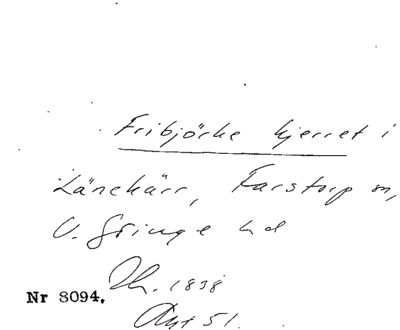 Fribjörke kjerret i
Länekärr, Farstorp sn,
V. Göinge hd
Nr 8094. Th. 1838
Ant 51.